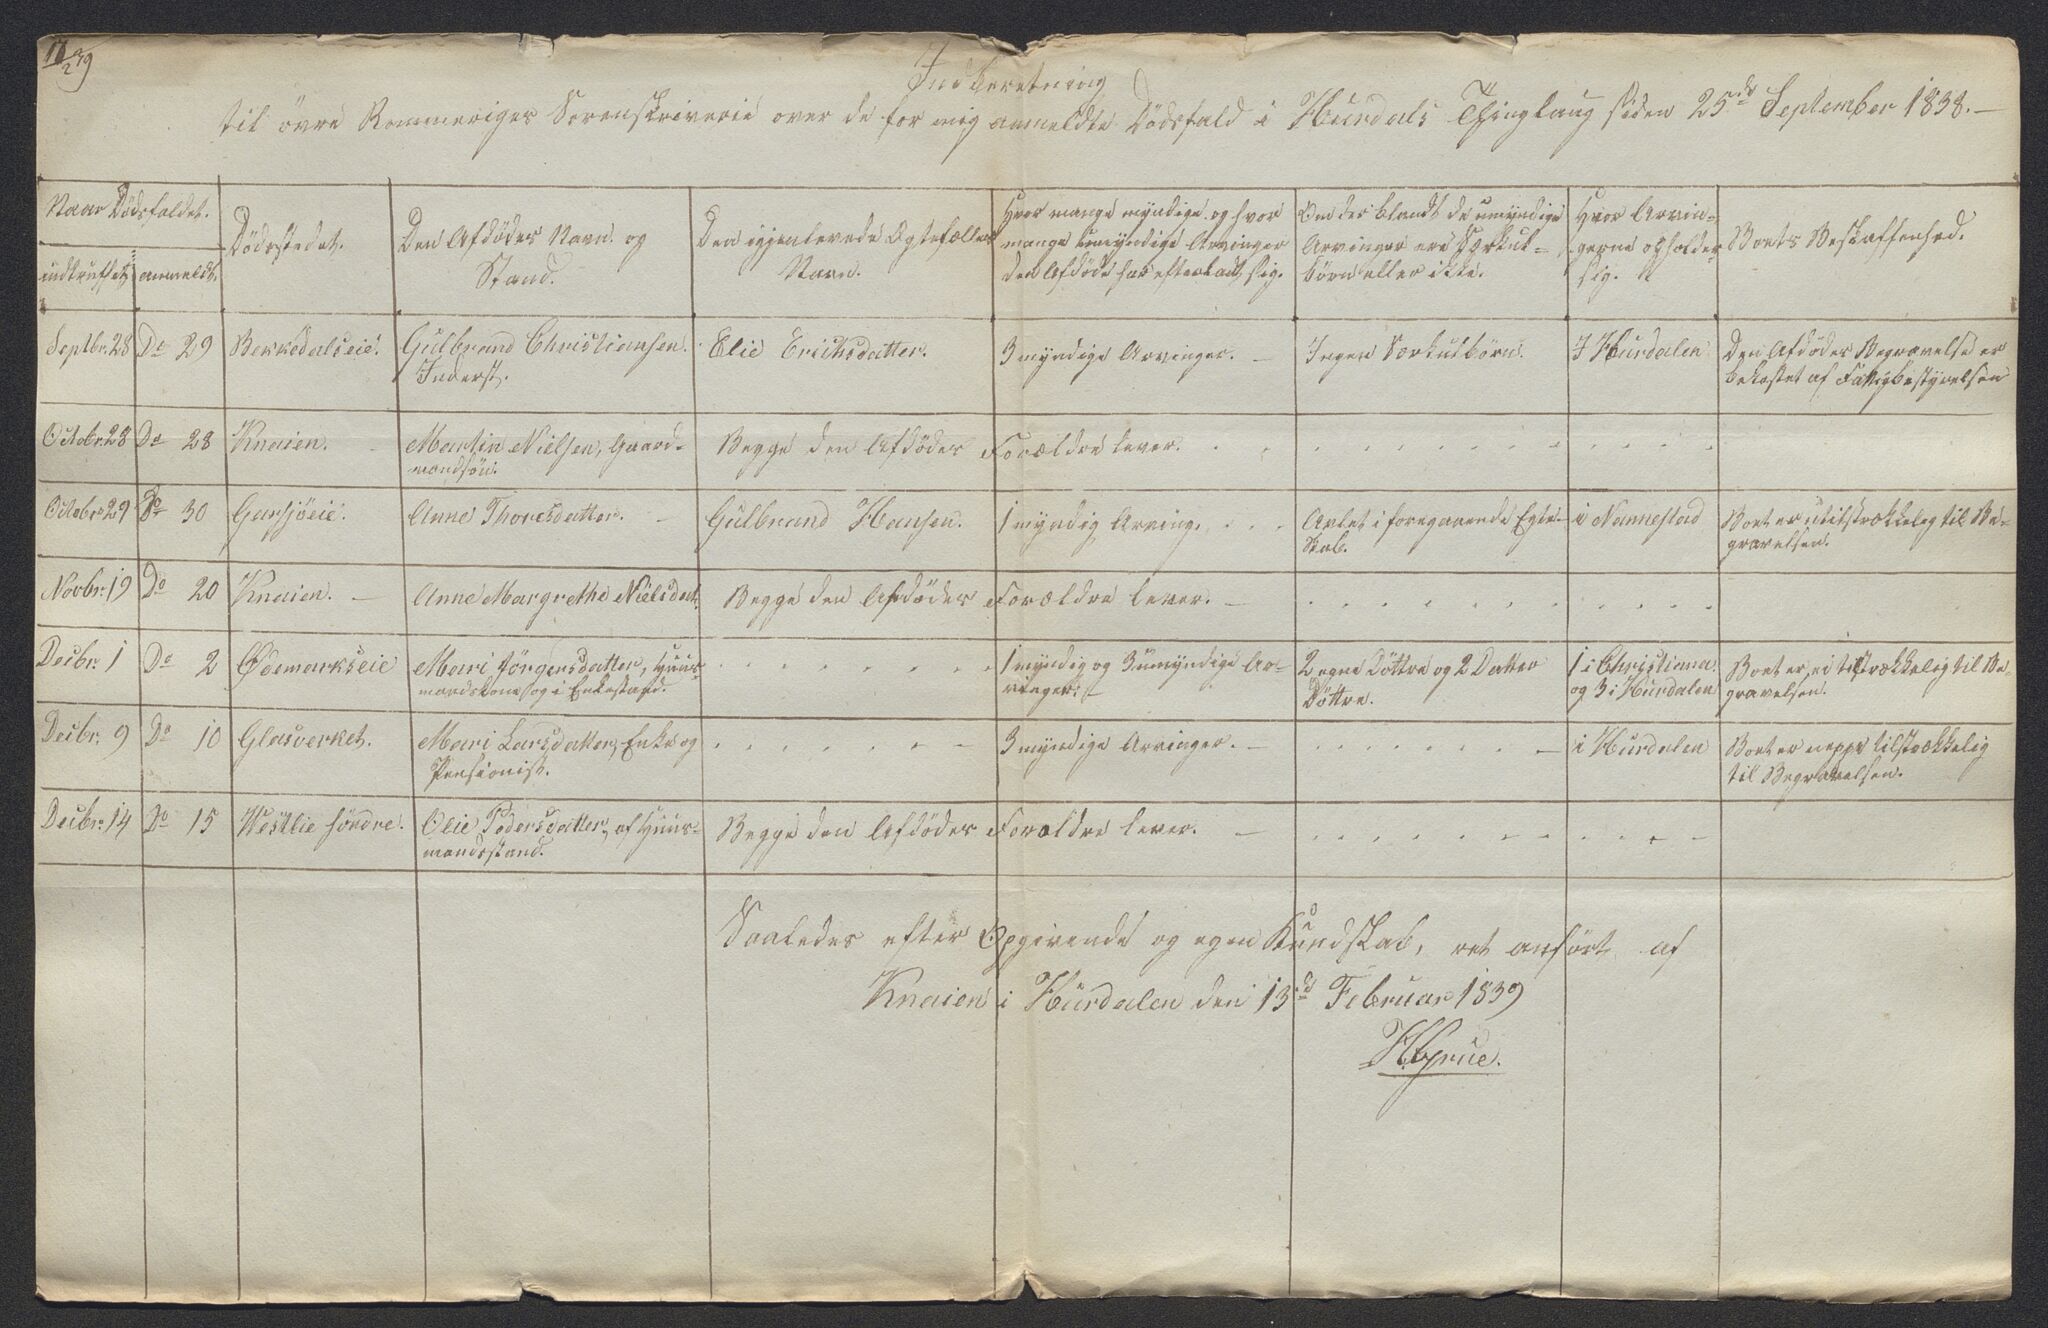 17/2 39
Indberetning
til övre Rommeriges Sorenskriverie over de for mig anmeldte Dödsfald i Hurdals Thinglaug siden 25de September 1838.—
Naar Dödsfaldet.
indtruffet
anmeldt.
Dödsstedet.
Den Afdödes Navn og
Stand.
Den igjenlevende Ægtefælles
Navn.
Hvor mange myndige og hvor
mange umyndige Arvinger
den Afdöde har efterladt sig.
Om der blandt de umyndige
Arvinger ere Særkul-
börn eller ikke.
Hvor Arvin-
gerne opholder
sig.
Boets Beskaffenhed.
Septbr. 28 Do 29 Bekkedalseie. Gulbrand Christiansen. Elie Ericksdatter. 3 myndige Arvinger. — Ingen Særkulbörn. I Hurdalen Den Afdödes Begravelse er
Inderst. bekostet af Fattigbestyrelsen
Octobr. 28 Do 28 Knaien. Martin Nielsen, Gaard- Begge den Afdödes Forældre lever.
mandsön.
Octobr. 29 Do 30 Garsjöeie. Anne Thoresdatter. — Gulbrand Hansen. 1 myndig Arving. Avlet i foregaaende Egte- i Nannestad Boet er utilstrækkelig til Be-
skab. gravelsen.
Novbr. 19 Do 20 Knaien. — Anne Margrethe Nielsdat. Begge den Afdödes Forældre lever. —
Decbr. 1 Do 2 Ødemarkseie Mari Jörgensdatter, Huus- 1 myndig og 3 umyndige Ar- 2 egne Döttre og 2 Datter 1 i Christiana Boet er ei tilstrækkelig til Be-
mandskone og i Enkestand. vinger. — Döttre. og 3 i Hurdalen gravelsen.
Decbr. 9 Do 10 Glasverket. Mari Larsdatter, Enke og 3 myndige Arvinger. — i Hurdalen Boet er neppe tilstrækkelig
Pensionist. til Begravelsen.
Decbr. 14 Do 15 Westlie söndre. Olie Pedersdatter, af Huus- Begge den Afdödes Forældre lever. —
mandsstand.
Saaledes efter Opgivende og egen Kundskab, ret anfört af
Knaien i Hurdalen den 13de Februar 1839